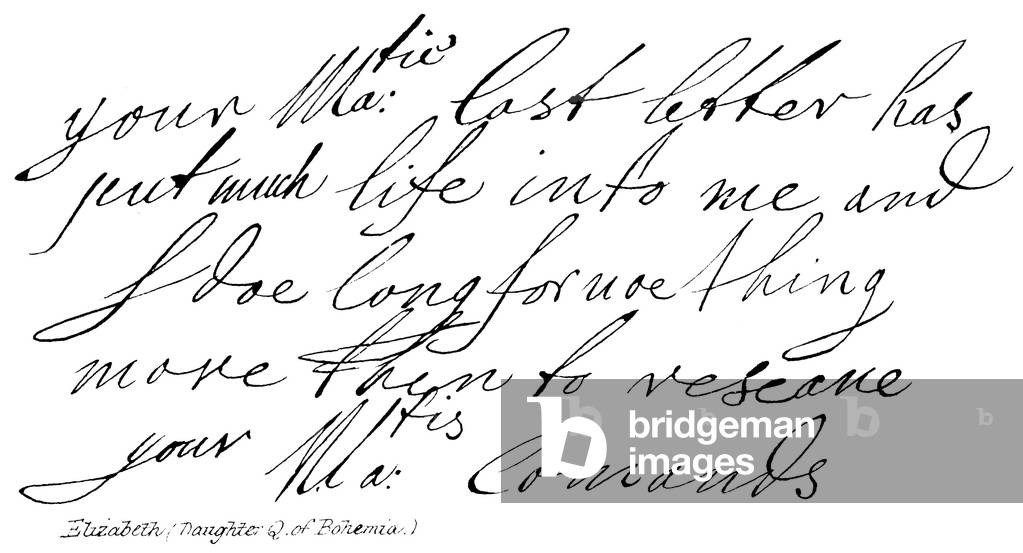 your Ma:tie last letter has
put much life into me and
I doe long for noe thing
more then to reseave
your Ma:tis Comands
Elizabeth (Daughter Q. of Bohemia.)
bridgeman
images
b
b
b
b